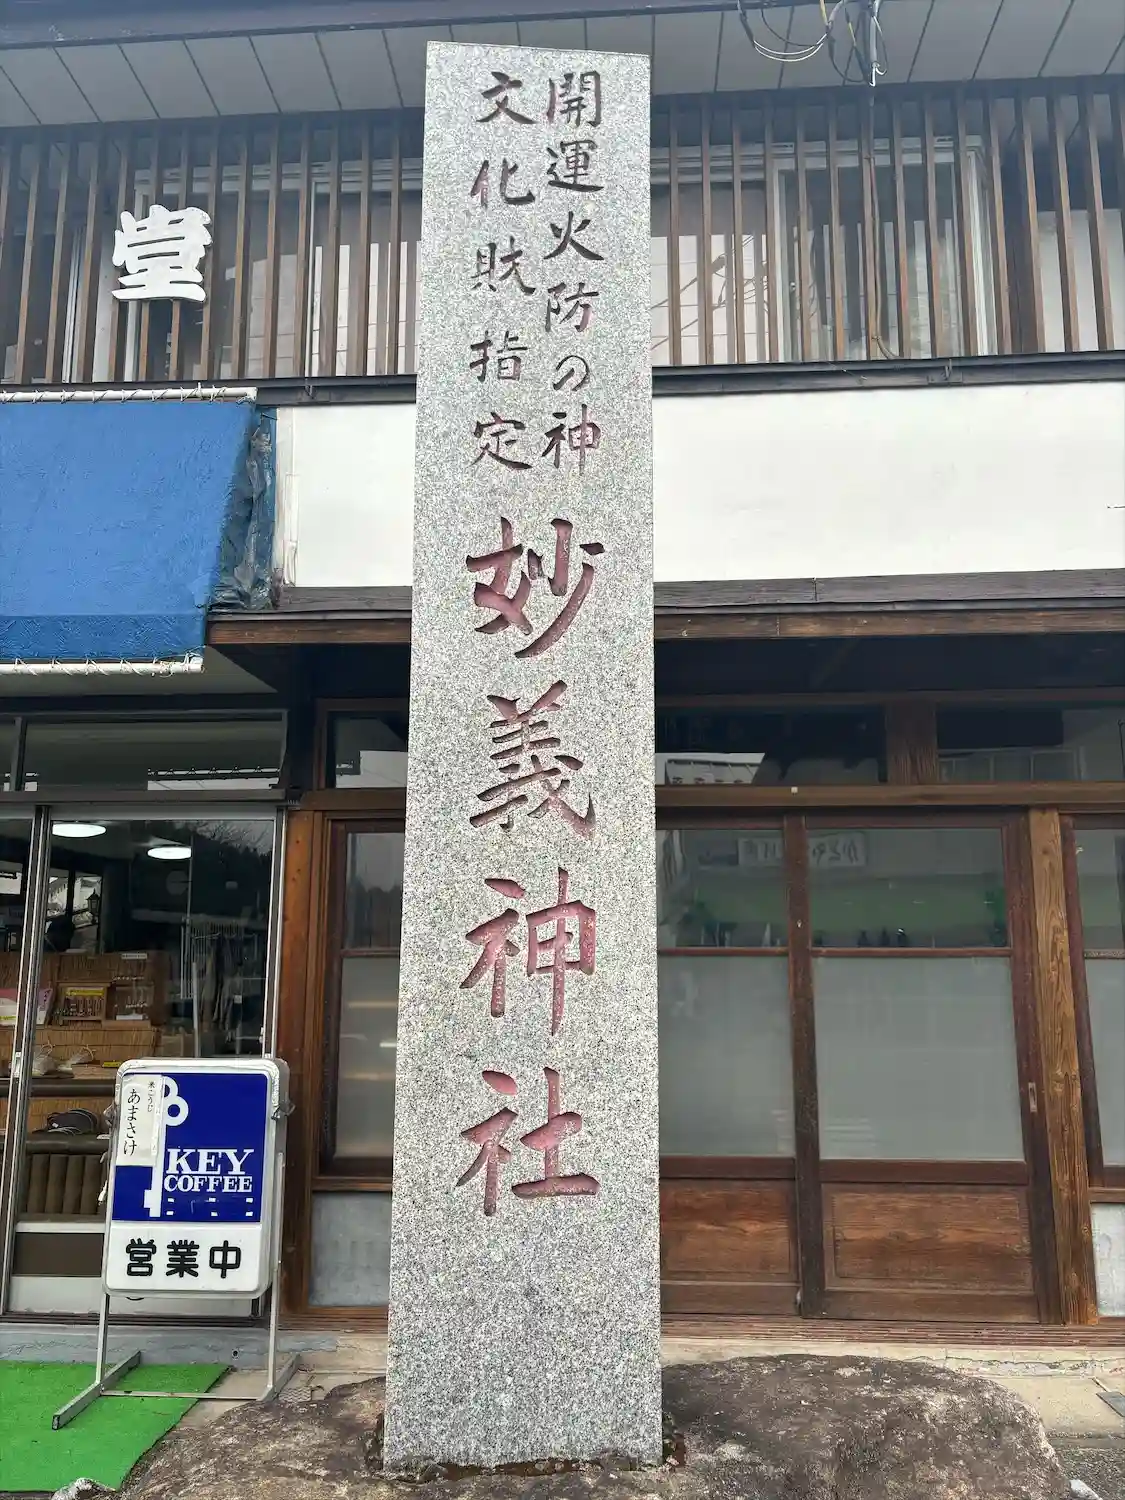 開運火防の神
文化財指定
妙義神社
堂
米こうじ
あまさけ
KEY
COFFEE
営業中